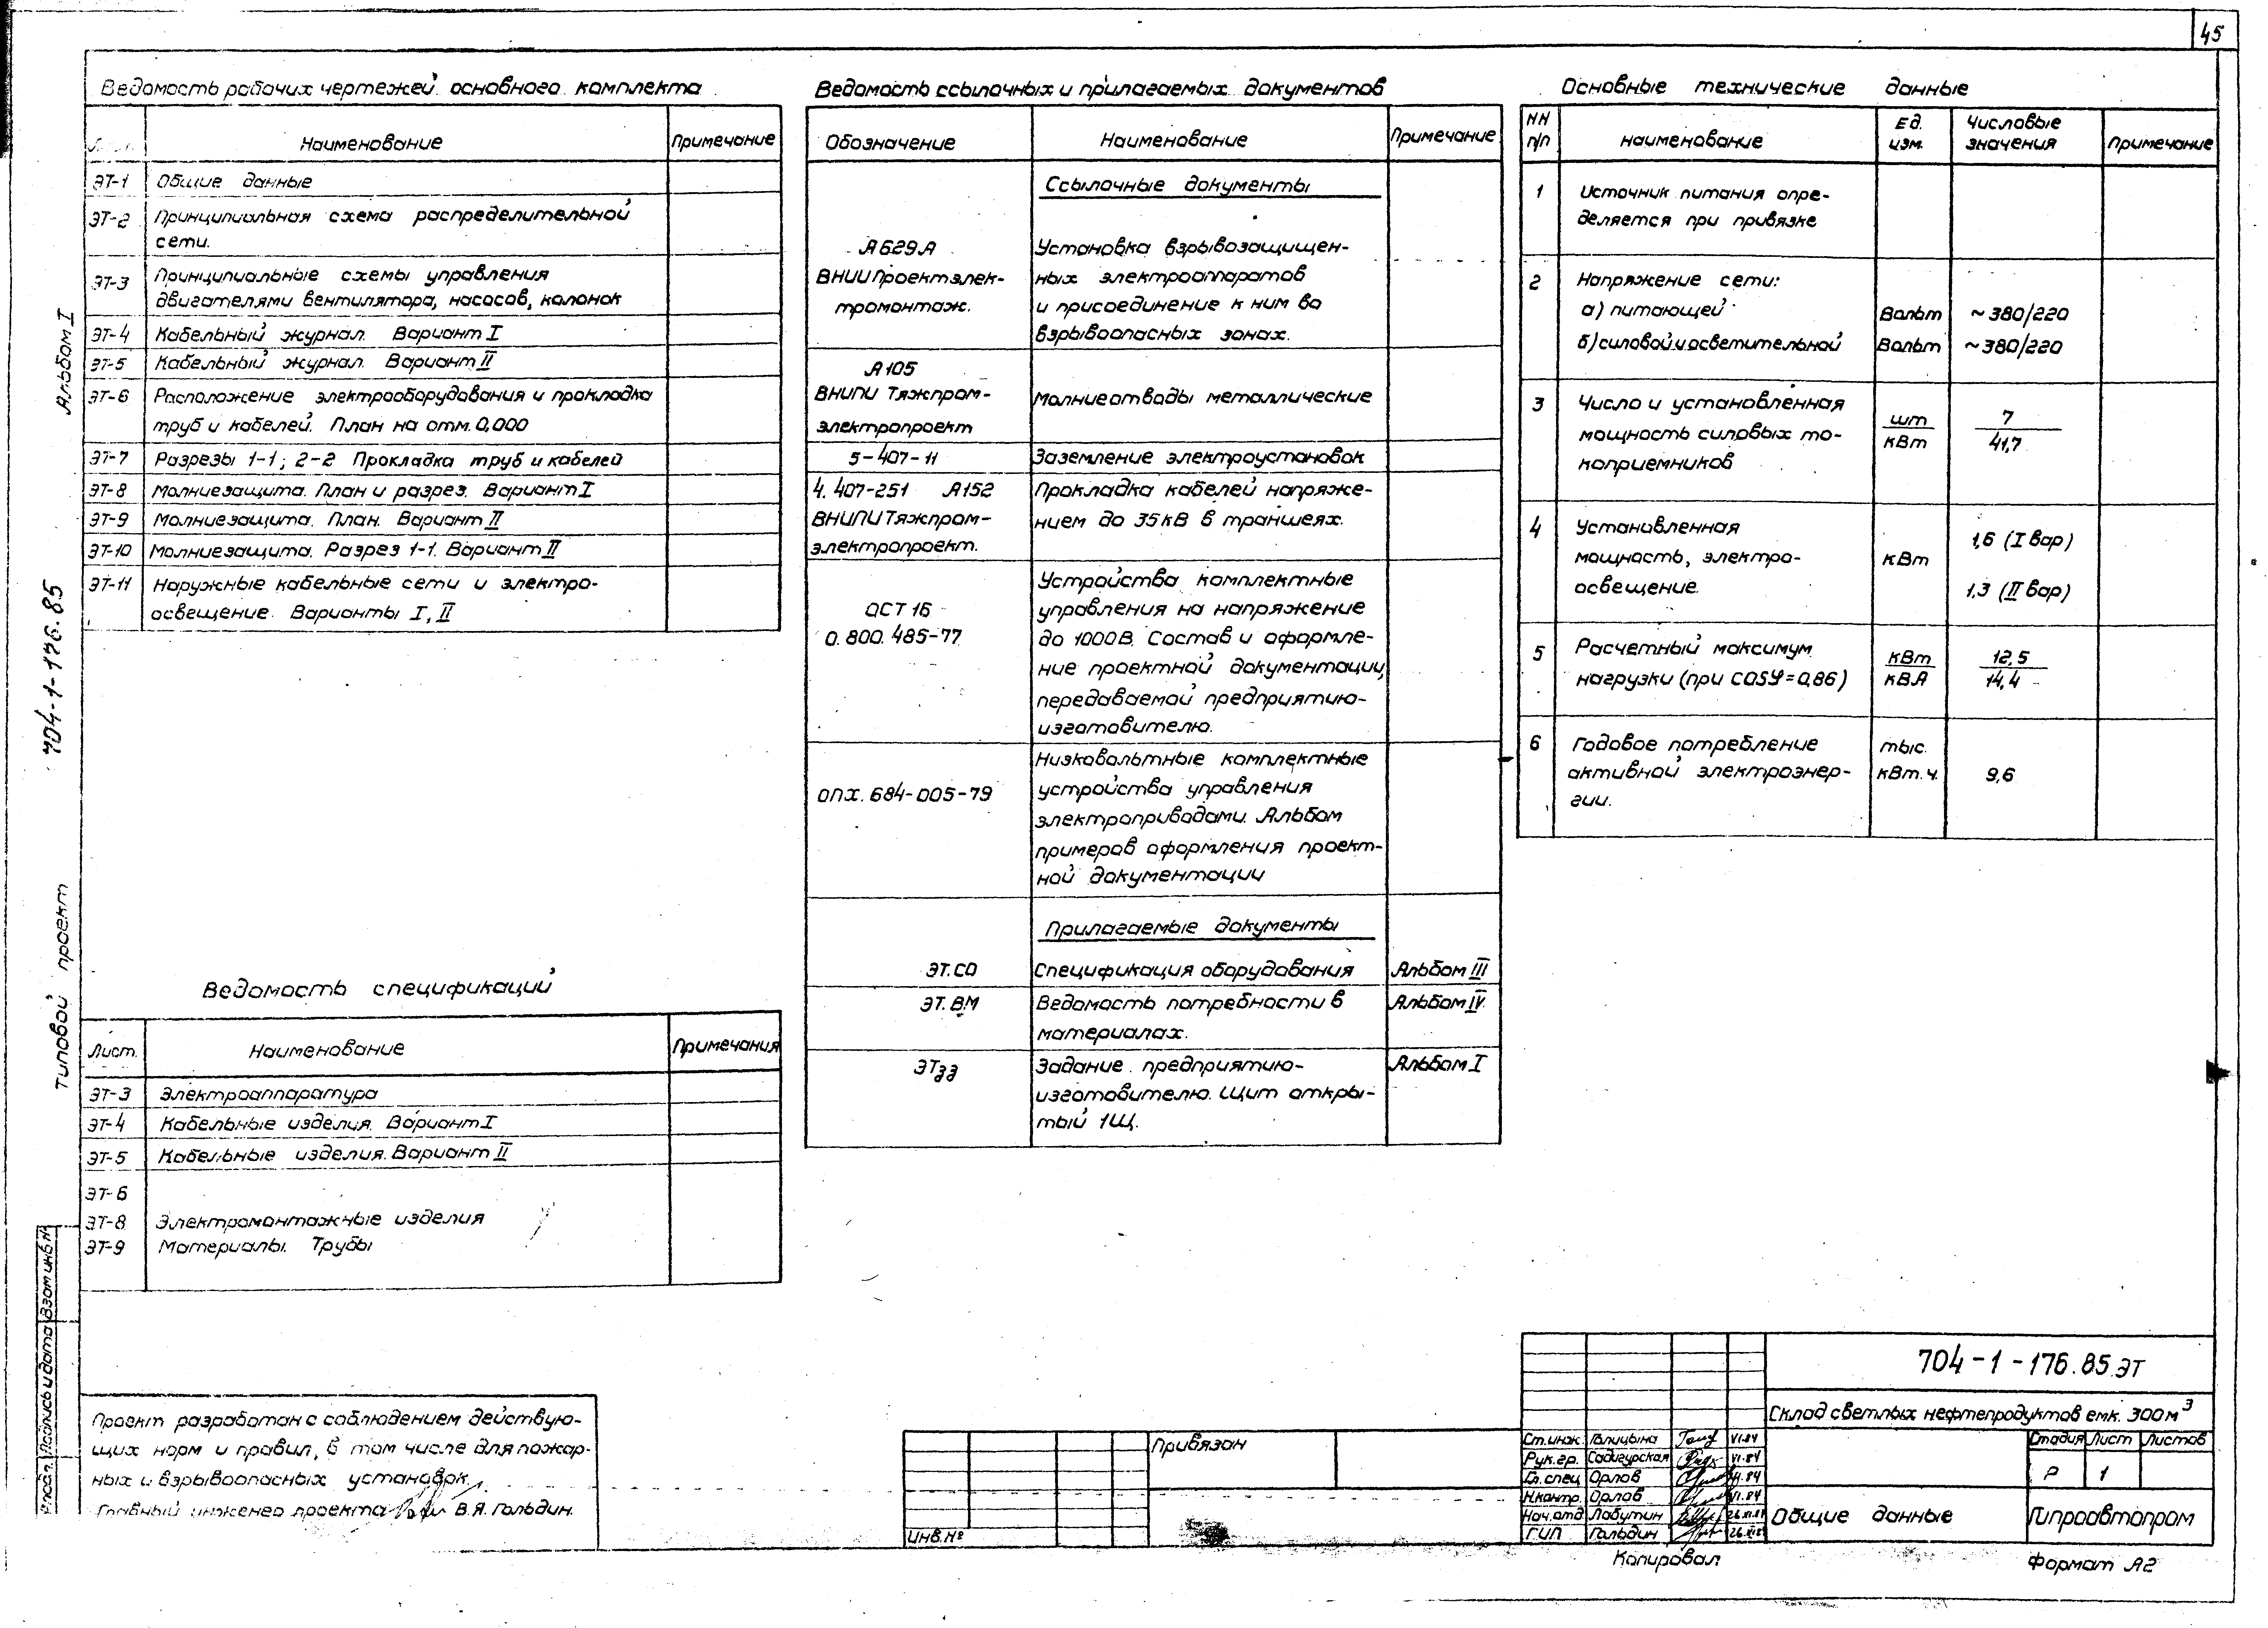 45
Ведомость рабочих чертежей основного комплекта
Наименование
Примечание
ЭТ-1 Общие данные
ЭТ-2 Принципиальная схема распределительной
сети.
ЭТ-3 Принципиальные схемы управления
двигателями вентилятора, насосов, колонок
ЭТ-4 Кабельный журнал. Вариант I
ЭТ-5 Кабельный журнал. Вариант II
ЭТ-6 Расположение электрооборудования и прокладка
труб и кабелей. План на отм. 0,000
ЭТ-7 Разрезы 1-1; 2-2 Прокладка труб и кабелей
ЭТ-8 Молниезащита. План и разрез. Вариант I
ЭТ-9 Молниезащита. План. Вариант II
ЭТ-10 Молниезащита. Разрез 1-1. Вариант II
ЭТ-11 Наружные кабельные сети и электро-
освещение. Варианты I, II
Ведомость спецификаций
Лист. Наименование Примечания
ЭТ-3 Электроаппаратура
ЭТ-4 Кабельные изделия. Вариант I
ЭТ-5 Кабельные изделия. Вариант II
ЭТ-6
ЭТ-8 Электромонтажные изделия
ЭТ-9 Материалы. Трубы
Проект разработан с соблюдением действую-
щих норм и правил, в том числе для пожар-
ных и взрывоопасных установок.
Главный инженер проекта В.Я. Гольдин.
Ведомость ссылочных и прилагаемых документов
Обозначение Наименование Примечание
Ссылочные документы
А629А Установка взрывозащищен-
ВНИИПроектэлек- ных электроаппаратов
тромонтаж. и присоединение к ним во
взрывоопасных зонах.
А105
ВНИПИ Тяжпром- Молниеотводы металлические
электропроект
5-407-11 Заземление электроустановок
4.407-251 А152 Прокладка кабелей напряже-
ВНИПИ Тяжпром- нием до 35кВ в траншеях.
электропроект.
Устройства комплектные
ОСТ 16 управления на напряжение
0.800.485-77 до 1000В. Состав и оформле-
ние проектной документации,
передаваемой предприятию-
изготовителю.
Низковольтные комплектные
ОПХ.684-005-79 устройства управления
электроприводами. Альбом
примеров оформления проект-
ной документации
Прилагаемые документы
ЭТ.СО Спецификация оборудования Альбом III
ЭТ.ВМ Ведомость потребности в Альбом IV.
материалах.
ЭТзз Задание предприятию- Альбом I
изготовителю. Щит откры-
тый 1Щ.
Основные технические данные
НН п/п наименование Ед. изм. Числовые значения Примечание
1 Источник питания опре-
деляется при привязке
2 Напряжение сети:
а) питающей Вольт ~380/220
б) силовой и осветительной Вольт ~380/220
3 Число и установленная шт 7
мощность силовых то- кВт 41,7
коприемников
4 Установленная 1,6 (I вар)
мощность, электро- кВт
освещение. 1,3 (II вар)
5 Расчетный максимум кВт 12,5
нагрузки (при cosφ=0,86) кВА 14,4
6 Годовое потребление тыс.
активной электроэнер- кВт.ч. 9,6
гии.
Альбом I
704-1-176.85
Типовой проект
Взам инв N
Подпись и дата
Привязан
Инв. №
704-1-176.85 ЭТ
Склад светлых нефтепродуктов емк. 300м³
Ст.инж. Голицына VI.84
Рук.гр. VI.84
Гл.спец Орлов VI.84
Н.контр. Орлов VI.84
Нач.отд Лабутин
ГИП Гольдин
Стадия Лист Листов
Р 1
Общие данные
Гипроавтопром
Копировал
Формат А2